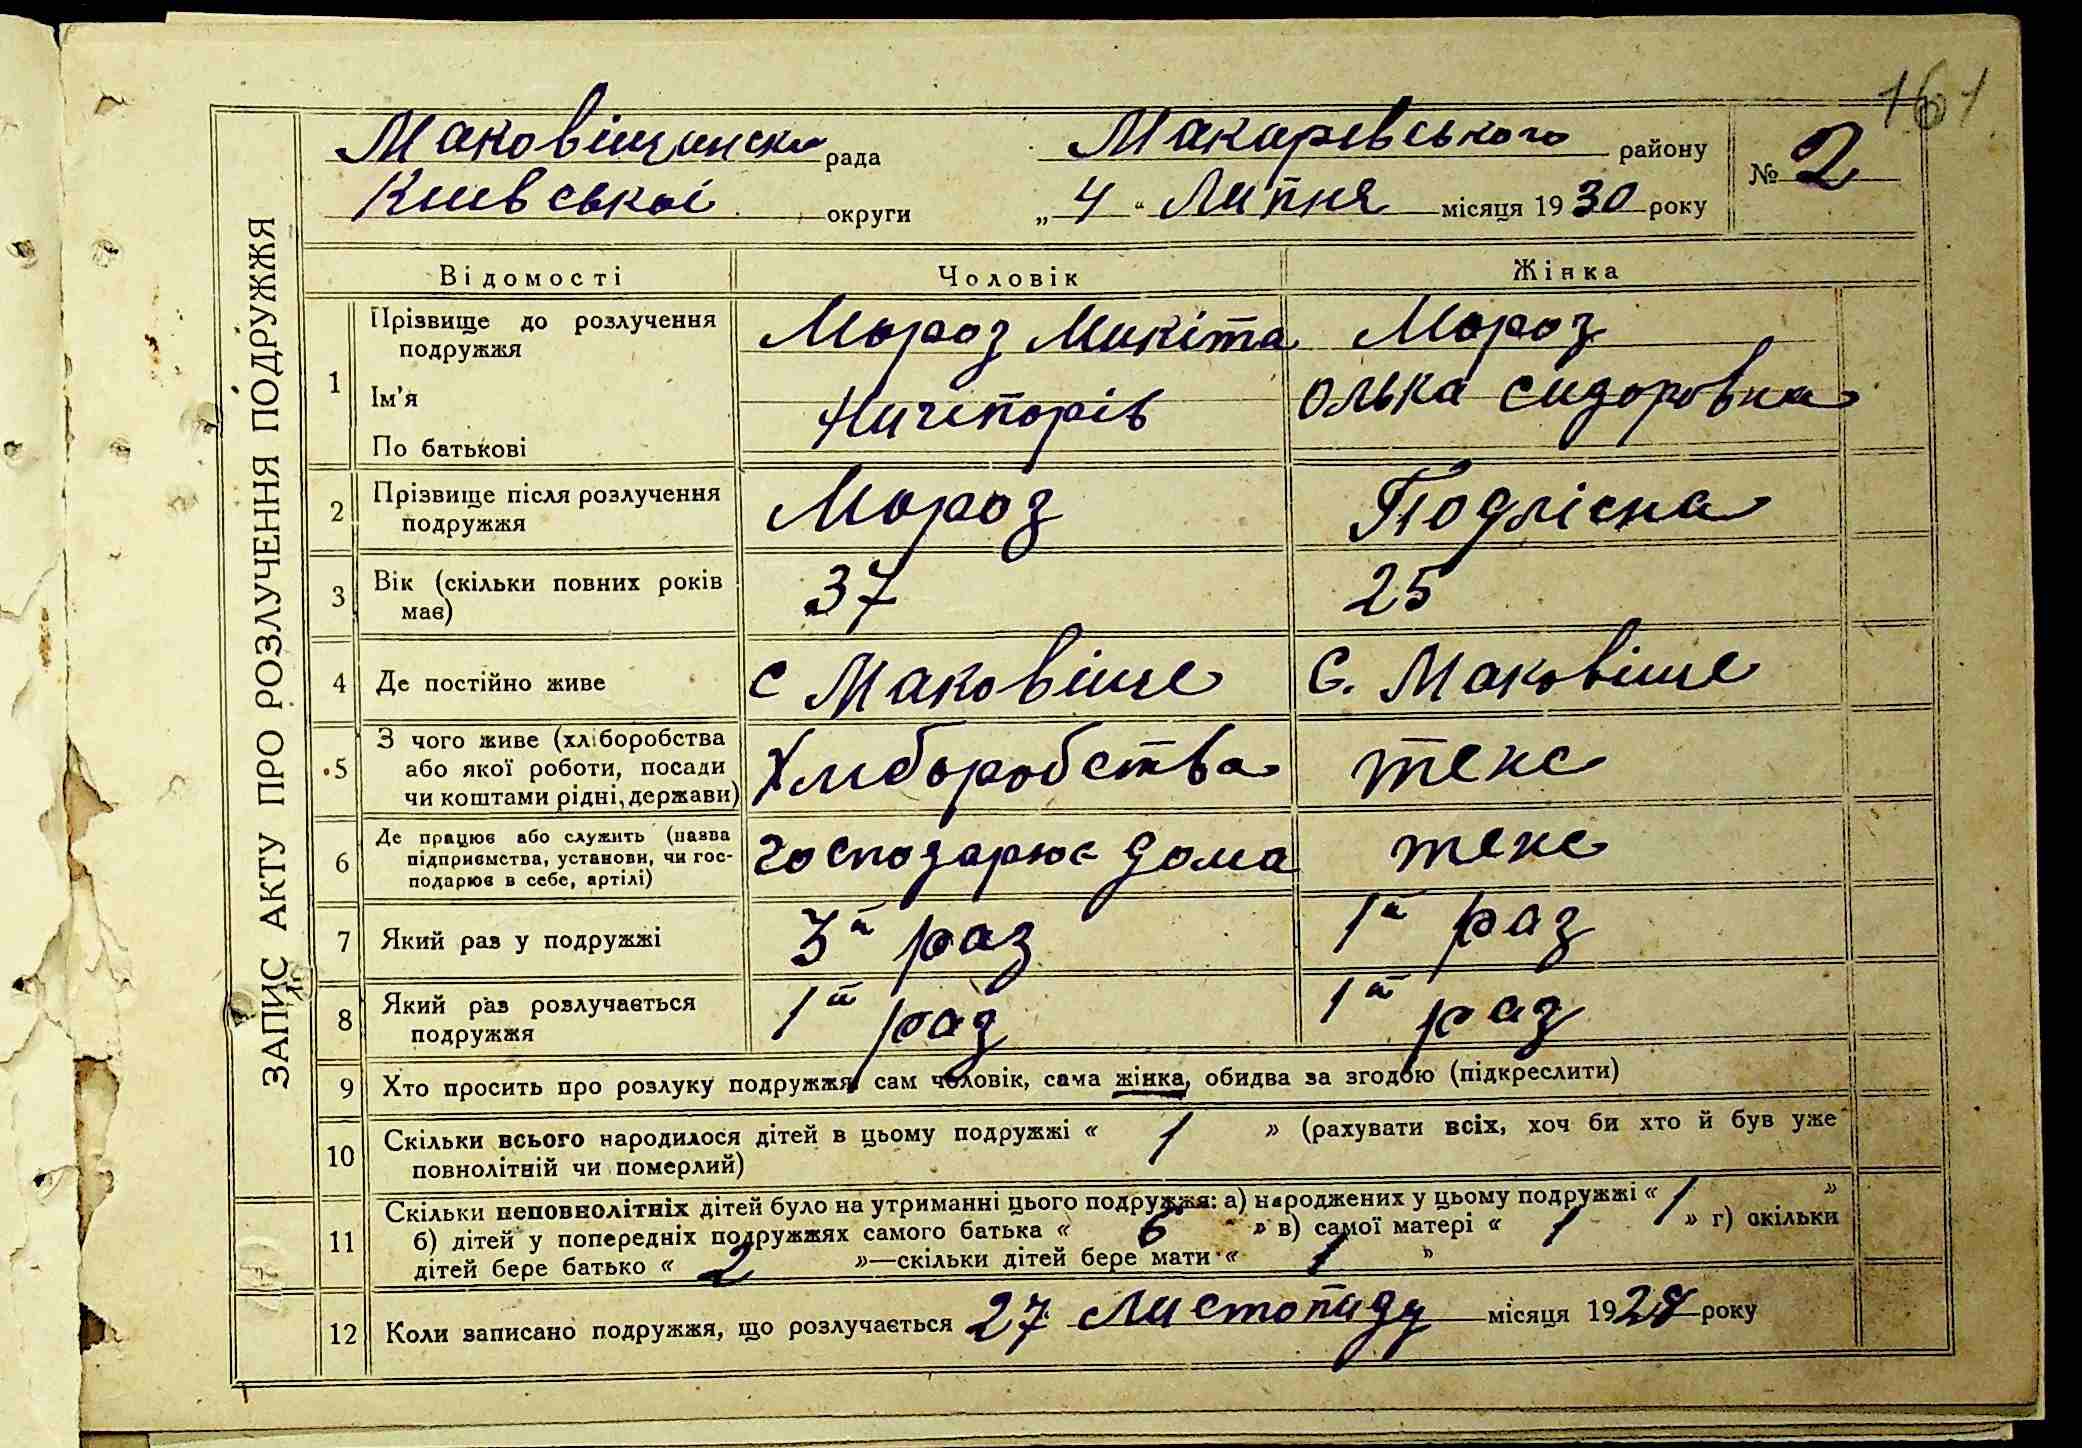 161
ЗАПИС АКТУ ПРО РОЗЛУЧЕННЯ ПОДРУЖЖЯ
Маковіщанска рада Макарівського району № 2
Киевської округи „4“ Липня місяця 1930 року
Відомості Чоловік Жінка
1 Прізвище до розлучення подружжя Мороз Микіта Мороз
Ім'я Ничіпорів Олька Сидоровна
По батькові
2 Прізвище після розлучення подружжя Мороз Подлісна
3 Вік (скільки повних років має) 37 25
4 Де постійно живе с Маковіще С. Маковіще
5 З чого живе (хліборобства або якої роботи, посади чи коштами рідні, держави) Хліборобства теже
6 Де працює або служить (назва підприємства, установи, чи господарює в себе, артілі) господарює дома теже
7 Який раз у подружжі 3й раз 1й раз
8 Який раз розлучається подружжя 1й раз 1й раз
9 Хто просить про розлуку подружжя, сам чоловік, сама жінка, обидва за згодою (підкреслити)
10 Скільки всього народилося дітей в цьому подружжі « 1 » (рахувати всіх, хоч би хто й був уже
повнолітній чи померлий)
11 Скільки неповнолітніх дітей було на утриманні цього подружжя: а) народжених у цьому подружжі « 1 »
б) дітей у попередніх подружжях самого батька « 6 » в) самої матері « 1 » г) скільки
дітей бере батько « 2 »—скільки дітей бере мати « 1 »
12 Коли записано подружжя, що розлучається 27 Листопаду місяця 1928 року